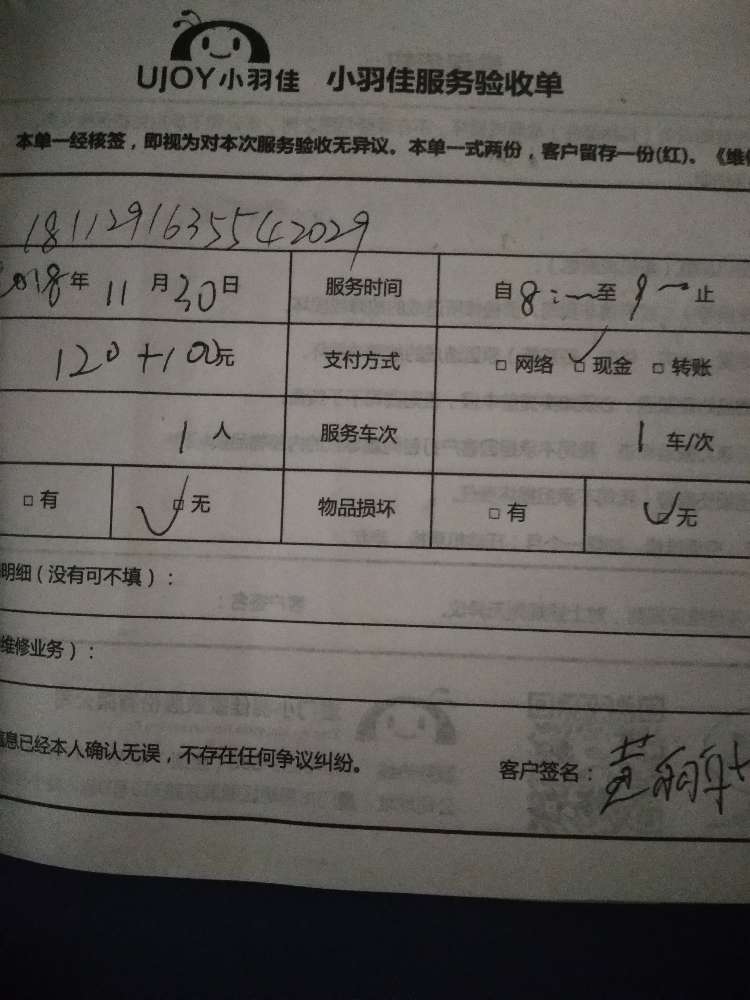 UJOY小羽佳 小羽佳服务验收单
本单一经核签，即视为对本次服务验收无异议。本单一式两份，客户留存一份(红)。《维修
1811291635542029
2018年11月30日 服务时间 自8:~至9~止
120+100元 支付方式 □网络 □现金 □转账
1人 服务车次 1车/次
□有 □无 物品损坏 □有 □无
明细（没有可不填）：
维修业务）：
信息已经本人确认无误，不存在任何争议纠纷。 客户签名：